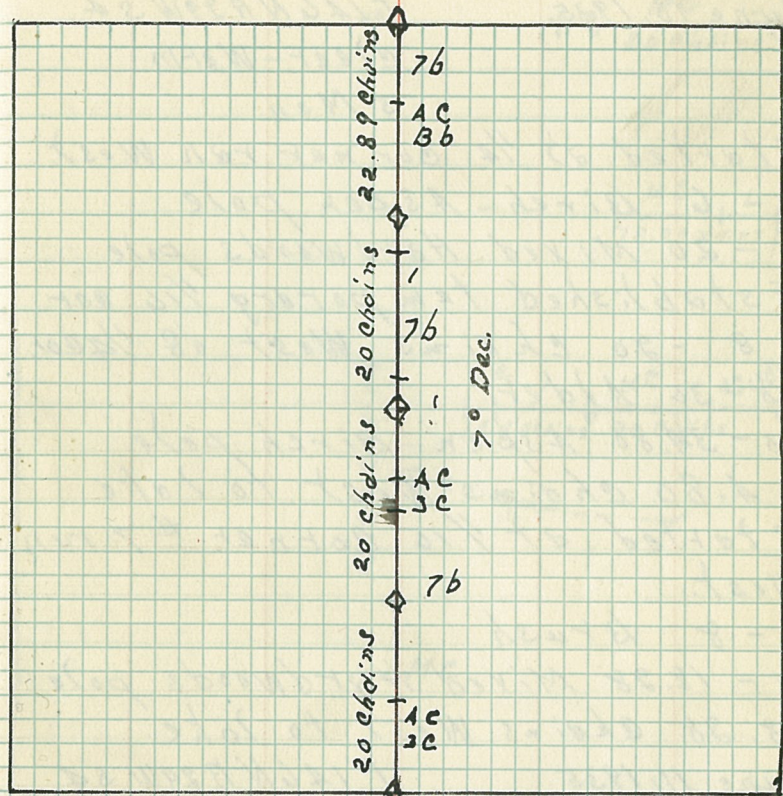 22.89 Chains
7b
AC
Bb
20 Chains
7b
7° Dec.
20 Chains
AC
3C
7b
20 Chains
AC
3C